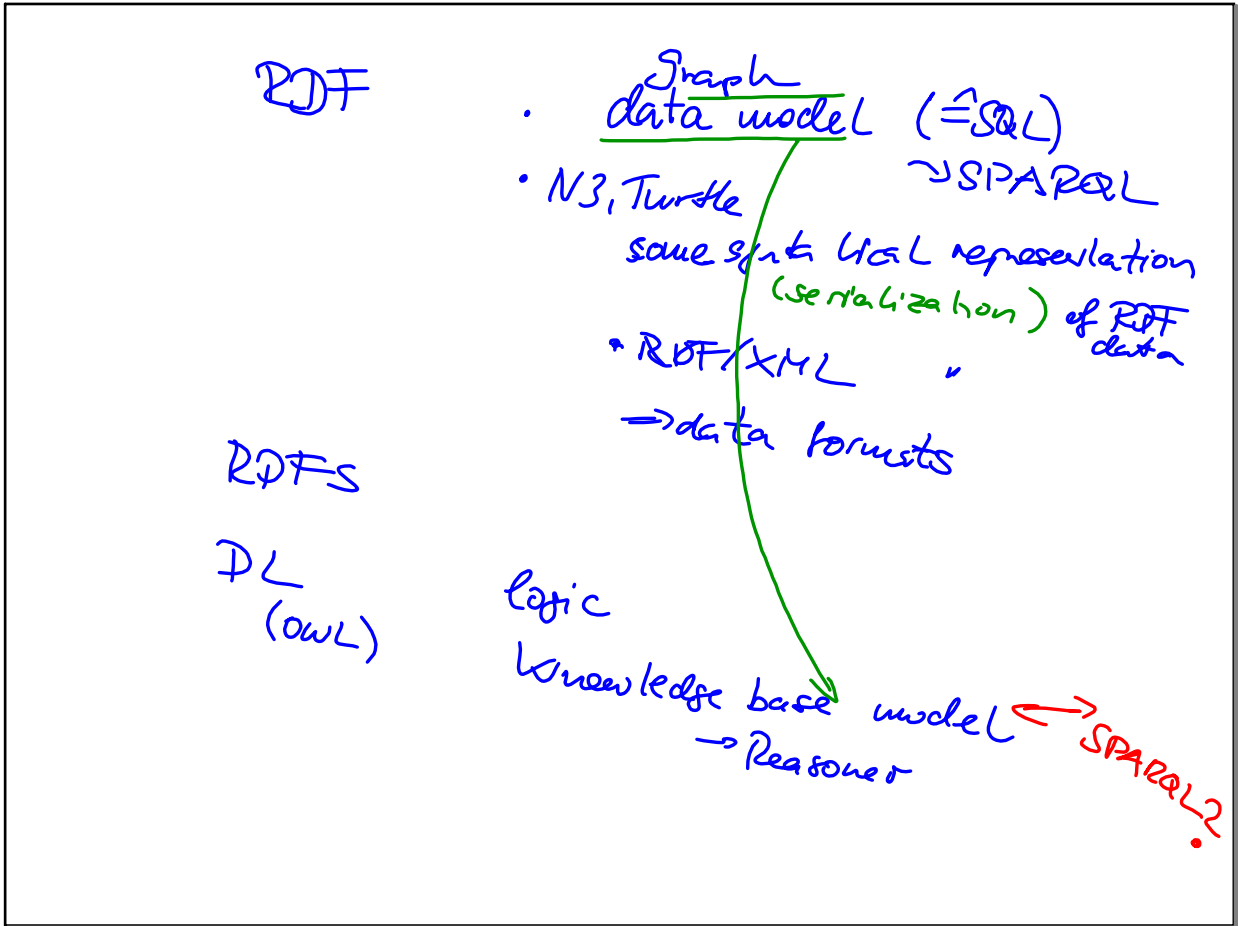 RDF
Graph
• data model (≙SQL)
→SPARQL
• N3, Turtle
some syntactical representation
(serialization) of RDF
data
• RDF/XML "
⇒data formats
RDFS
DL
(OWL)
logic
Knowledge base model ↔ SPARQL?
→ Reasoner